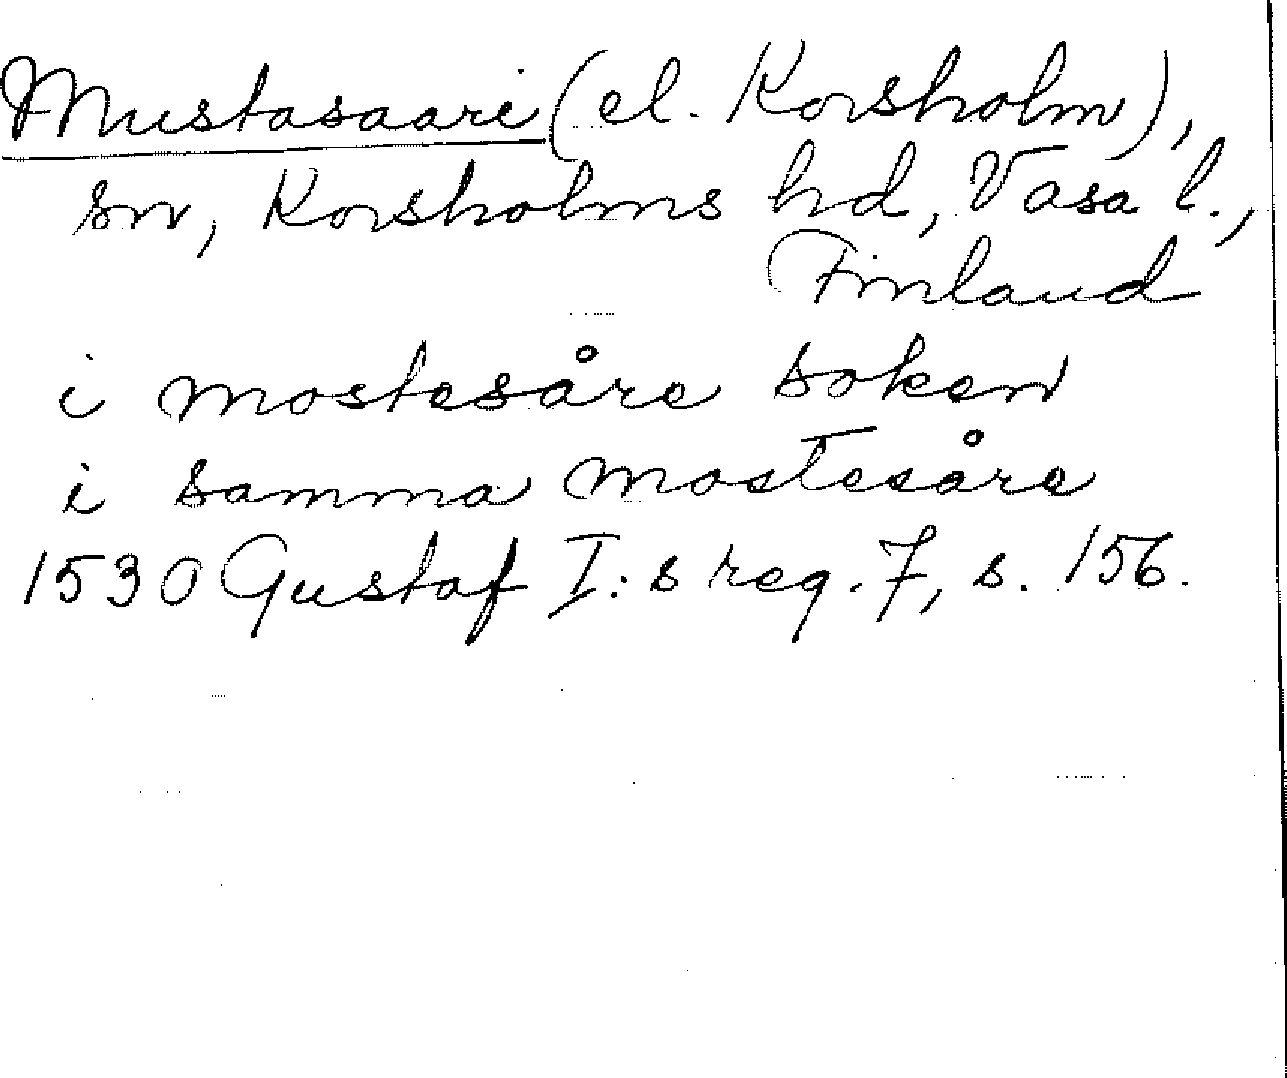 Mustasaari (el. Korsholm),
sn, Korsholms hd, Vasa l.,
Finland
i mostesåre soken
i samma mostesåre
1530 Gustaf I:s reg. 7, s. 156.